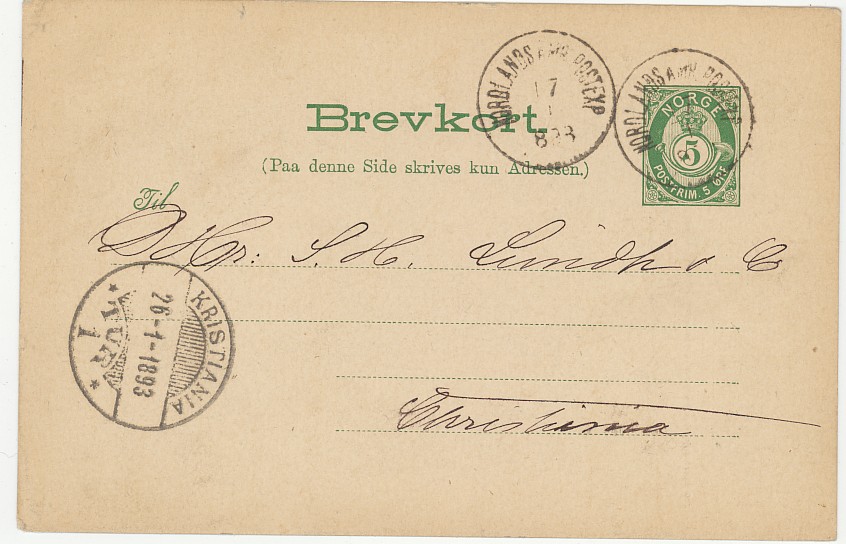 NORDLANDS AMR. POSTEXP
17
1
893
NORDLANDS AMR. POSTEXP
NORGE
5
POSTFRIM. 5 ØRE
Brevkort.
(Paa denne Side skrives kun Adressen.)
Til
D Hr: S. H. Lundh & C
KRISTIANIA
26-1-1893
* TUR *
1
Christiania